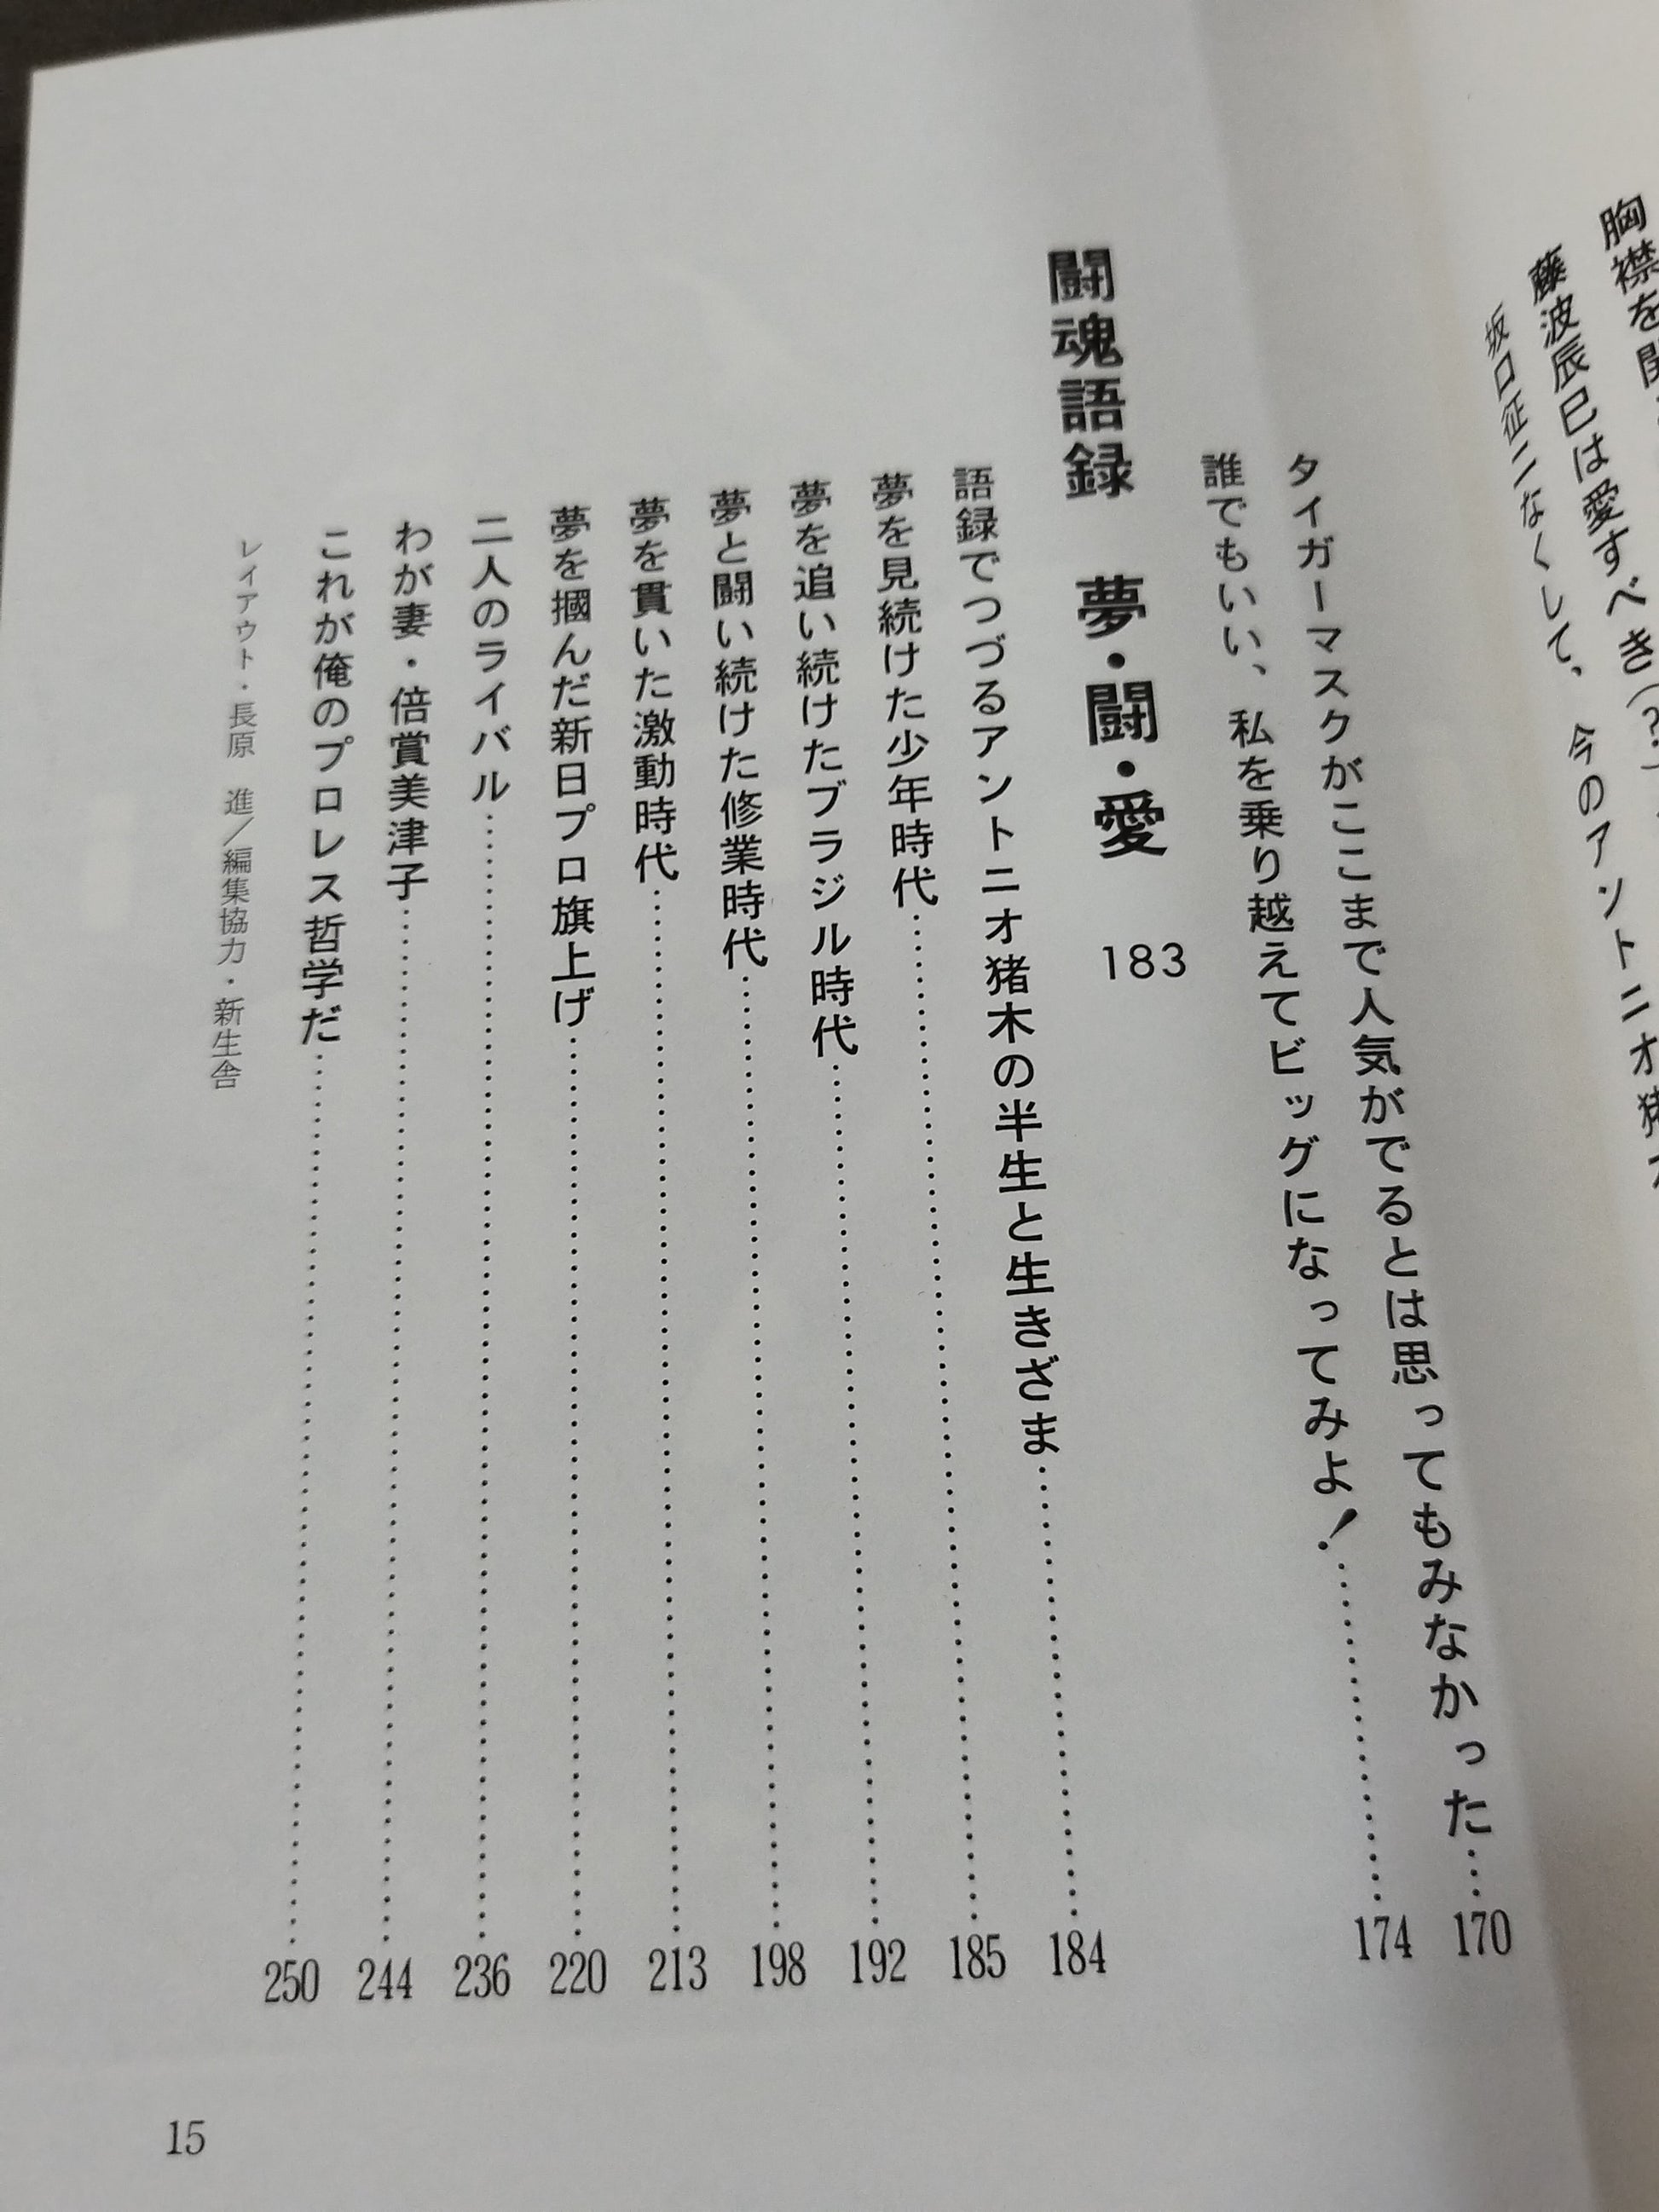 胸襟を開
藤波辰巳は愛すべき(?)
坂口征二なくして、今のアントニオ猪木
タイガーマスクがここまで人気がでるとは思ってもみなかった…170
誰でもいい、私を乗り越えてビッグになってみよ!…174
闘魂語録 夢・闘・愛 183
語録でつづるアントニオ猪木の半生と生きざま…184
夢を見続けた少年時代…185
夢を追い続けたブラジル時代…192
夢と闘い続けた修業時代…198
夢を貫いた激動時代…213
夢を摑んだ新日プロ旗上げ…220
二人のライバル…236
わが妻・倍賞美津子…244
これが俺のプロレス哲学だ…250
レイアウト・長原 進/編集協力・新生舎
15